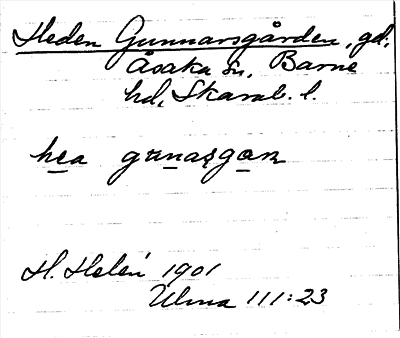 Heden Gunnarsgården, gd,
Åsaka sn, Barne
hd, Skarab. l.
hea gunasgan
H. Helén 1901
Ulma 111:23